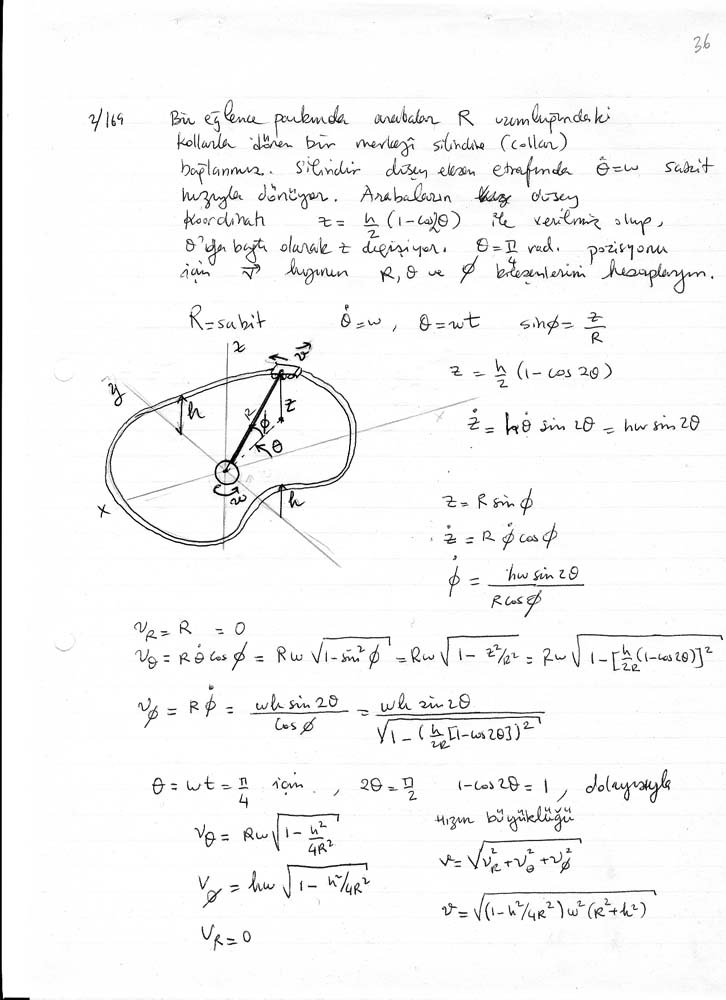 36
2/169 Bir eğlence parkında arabalar R uzunluğundaki
kollarla dönen bir merkezî silindire (collar)
bağlanmış. Silindir düşey eksen etrafında θ̇=ω sabit
hızıyla dönüyor. Arabaların düşey
koordinatı z = h/2 (1-cos2θ) ile verilmiş olup,
θ'ya bağlı olarak z değişiyor. θ=π/4 rad. pozisyonu
için v⃗ hızının R, θ ve ϕ bileşenlerini hesaplayın.
R=sabit θ̇=ω, θ=ωt sinϕ= z/R
z = h/2 (1-cos 2θ)
ż = hθ̇ sin 2θ = hω sin 2θ
z
v⃗
y
h
R
ϕ
z
θ
x
x
ω
h
z = R sinϕ
ż = R ϕ̇ cosϕ
ϕ̇ = hω sin 2θ / R cosϕ
v_R = R = 0
v_θ = R θ̇ cosϕ = Rω √(1-sin²ϕ) = Rω √(1 - z²/R²) = Rω √(1-[h/2R (1-cos2θ)]²)
v_ϕ = R ϕ̇ = ωh sin 2θ / cosϕ = ωh sin 2θ / √(1-(h/2R [1-cos2θ])²)
θ = ωt = π/4 için, 2θ=π/2 1-cos2θ = 1, dolayısıyla
Hızın büyüklüğü
v_θ = Rω √(1 - h²/4R²)
v = √(v_R² + v_θ² + v_ϕ²)
v_ϕ = hω √(1 - h²/4R²)
v = √((1-h²/4R²)ω²(R²+h²))
v_R = 0